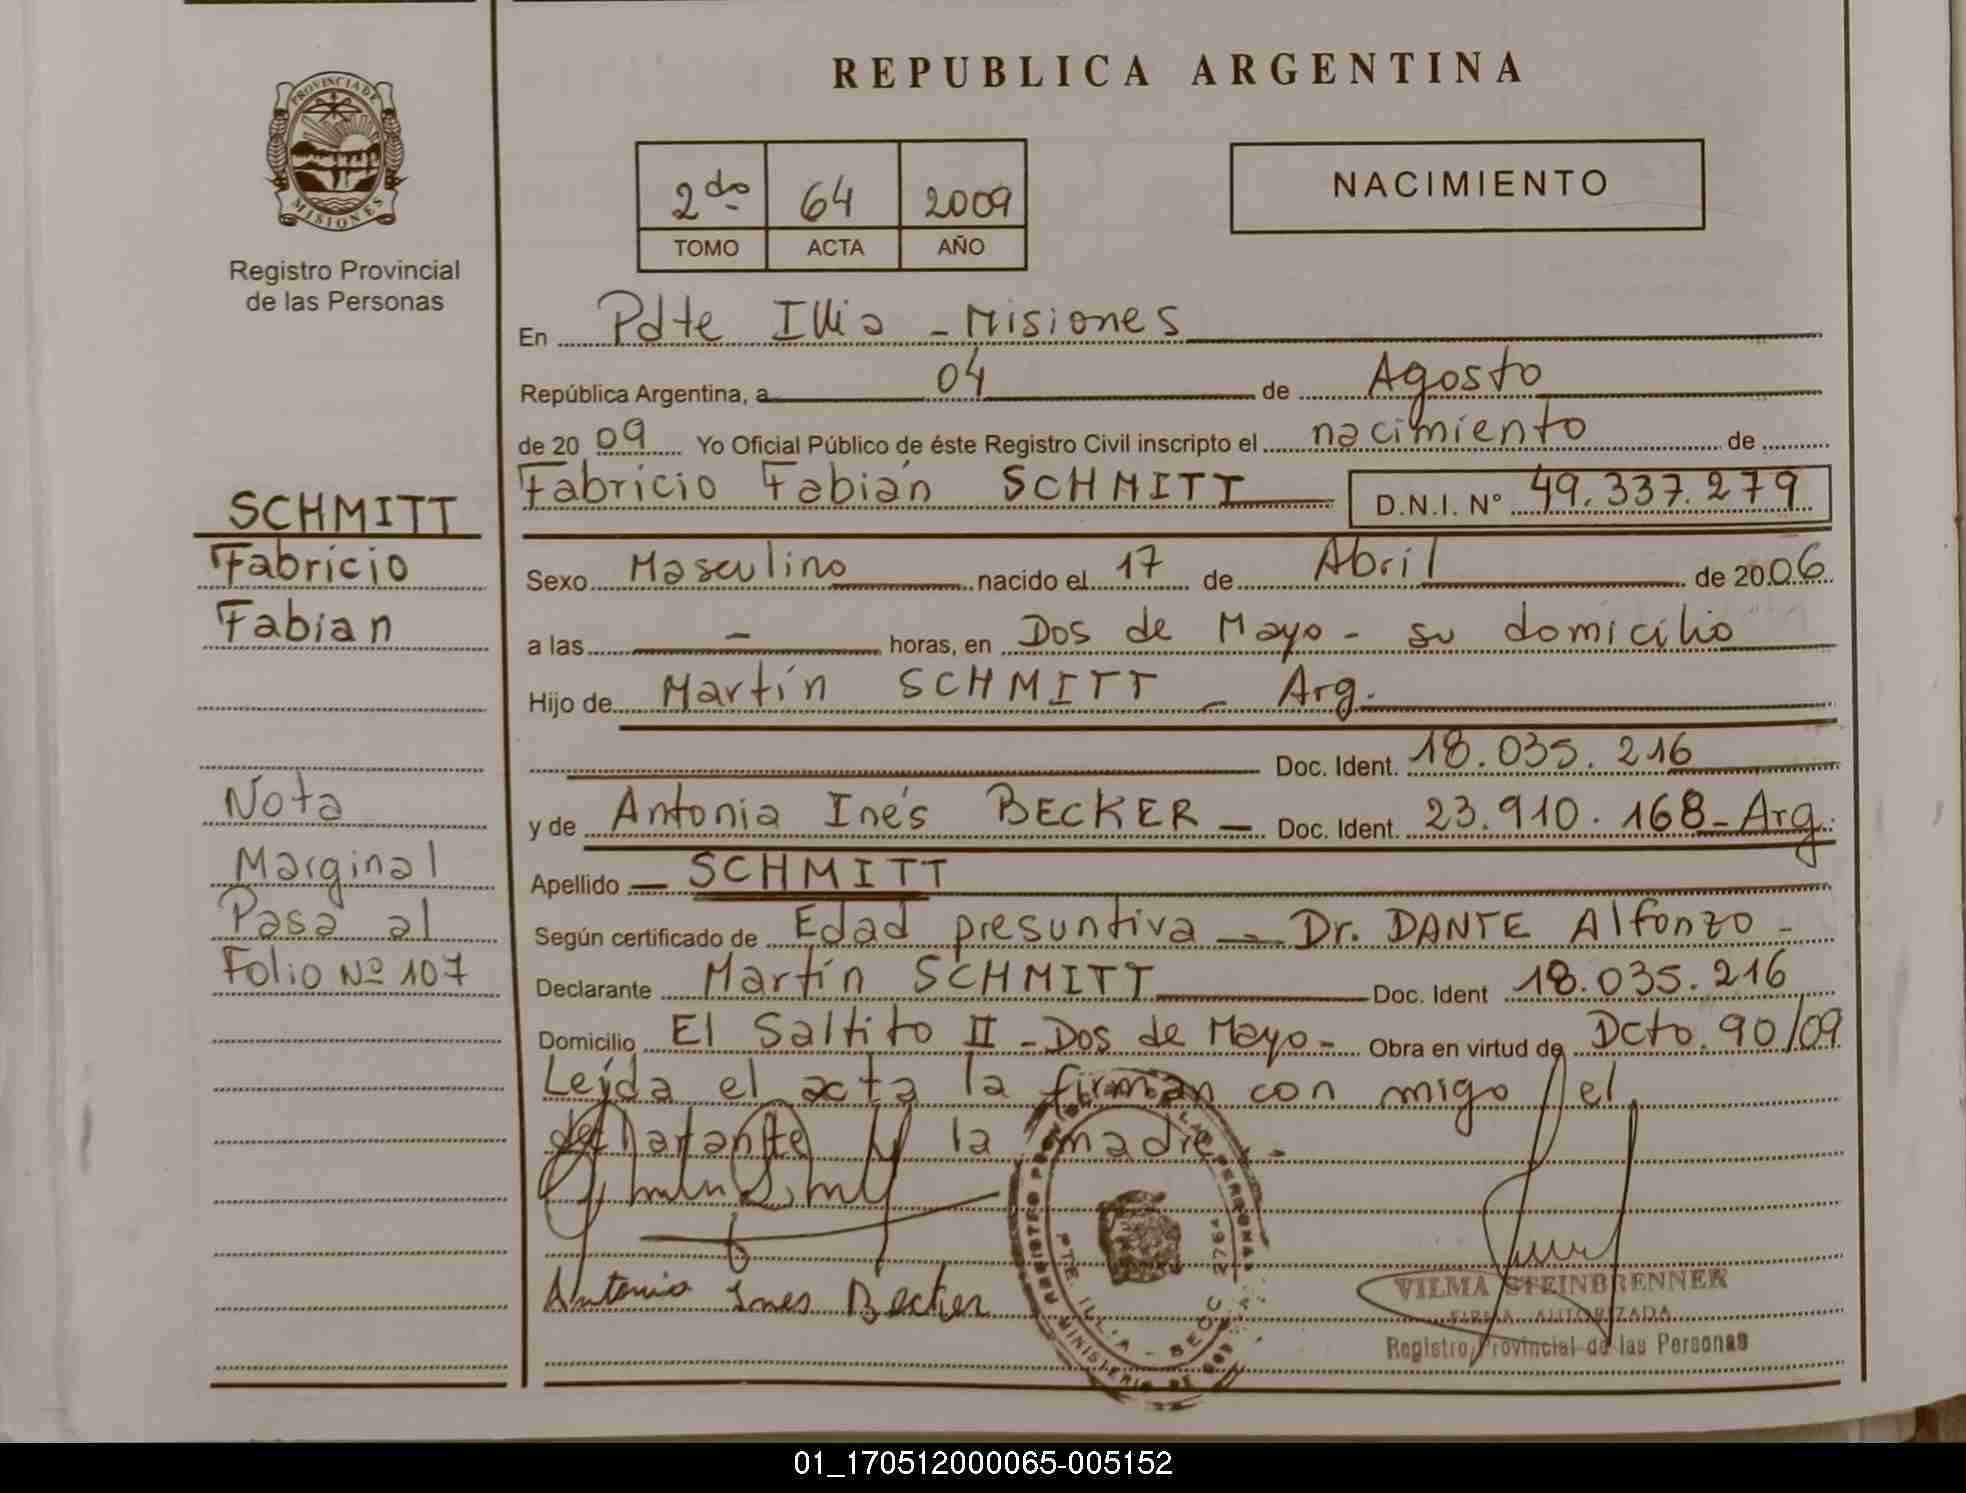 REPUBLICA ARGENTINA
PROVINCIA DE
MISIONES
Registro Provincial
de las Personas
2do 64 2009
TOMO ACTA AÑO
NACIMIENTO
En Pdte Illia - Misiones
República Argentina, a 04 de Agosto
de 20 09 Yo Oficial Público de éste Registro Civil inscripto el nacimiento de
Fabricio Fabián SCHMITT D.N.I. N° 49.337.279
SCHMITT
Fabricio
Fabian
Sexo Masculino nacido el 17 de Abril de 20 06
a las - horas, en Dos de Mayo - su domicilio
Hijo de Martín SCHMITT - Arg.
Doc. Ident. 18.035.216
y de Antonia Inés BECKER - Doc. Ident. 23.910.168 - Arg.
Apellido - SCHMITT
Según certificado de Edad presuntiva - Dr. DANTE Alfonzo -
Declarante Martín SCHMITT Doc. Ident 18.035.216
Domicilio El Saltito II - Dos de Mayo - Obra en virtud de Dcto. 90/09
Leída el acta la firman con migo el
declarante y la madre.-
Nota
Marginal
Pasa al
Folio Nº 107
Antonia Ines Becker
PTE. ILLIA
2764
VILMA STEINBRENNER
FIRMA AUTORIZADA
Registro Provincial de las Personas
01_170512000065-005152